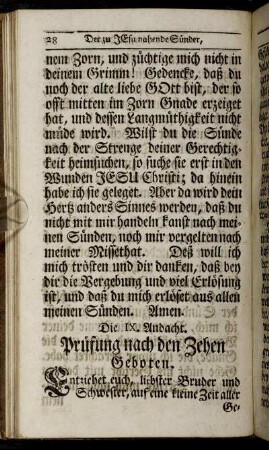 28 Der zu JEsu nahende Sünder,
nem Zorn, und züchtige mich nicht in
deinem Grimm! Gedencke, daß du
noch der alte liebe GOtt bist, der so
offt mitten im Zorn Gnade erzeiget
hat, und dessen Langmüthigkeit nicht
müde wird. Wilst du die Sünde
nach der Strenge deiner Gerechtig-
keit heimsuchen, so suche sie erst in den
Wunden JESU Christi; da hinein
habe ich sie geleget. Aber da wird dein
Hertz anders Sinnes werden, daß du
nicht mit mir handeln kanst nach mei-
nen Sünden, noch mir vergelten nach
meiner Missethat. Deß will ich
mich trösten und dir dancken, daß bey
dir die Vergebung und viel Erlösung
ist, und daß du mich erlöset aus allen
meinen Sünden. Amen.
Die IX. Andacht.
Prüfung nach den Zehen
Geboten.
Entziehet euch, liebster Bruder und
Schwester, auf eine kleine Zeit aller
Ge-